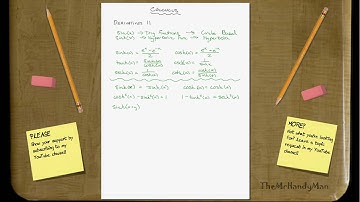 Calculus
Derivatives 11
Sin(x) → Trig Functions → Circle Based
Sinh(x) → Hyperbolic Fun → Hyperbola
sinh(x) = e^x - e^-x / 2 cosh(x) = e^x + e^-x / 2
tanh(x) = sinh(x) / cosh(x)
sech(x) = 1 / cosh(x)
cosh²(x) - sinh²(x) = 1 1 - tanh²(x) = sech²(x)
sinh(x+y)
PLEASE
Give your support by
subscribing to my
YouTube channel!
MORE?
Not what you're looking
for? Leave a topic
request in my YouTube
channel!
TheMrHandyMan